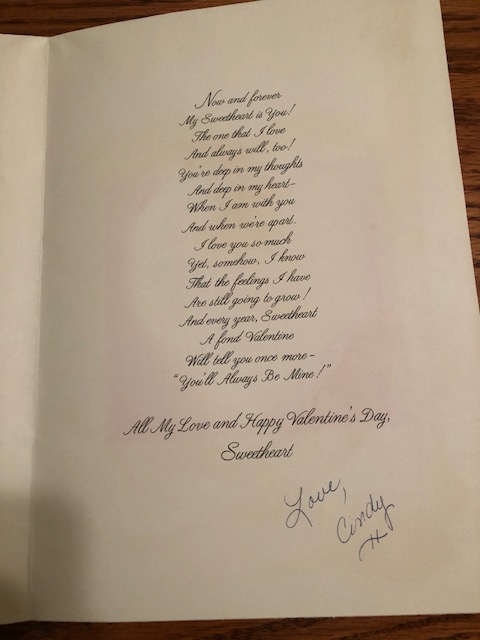 Now and forever
My Sweetheart is You!
The one that I love
And always will, too!
You're deep in my thoughts
And deep in my heart–
When I am with you
And when we're apart.
I love you so much
Yet, somehow, I know
That the feelings I have
Are still going to grow!
And every year, Sweetheart
A fond Valentine
Will tell you once more –
"You'll Always Be Mine!"
All My Love and Happy Valentine's Day,
Sweetheart
Love,
Cindy